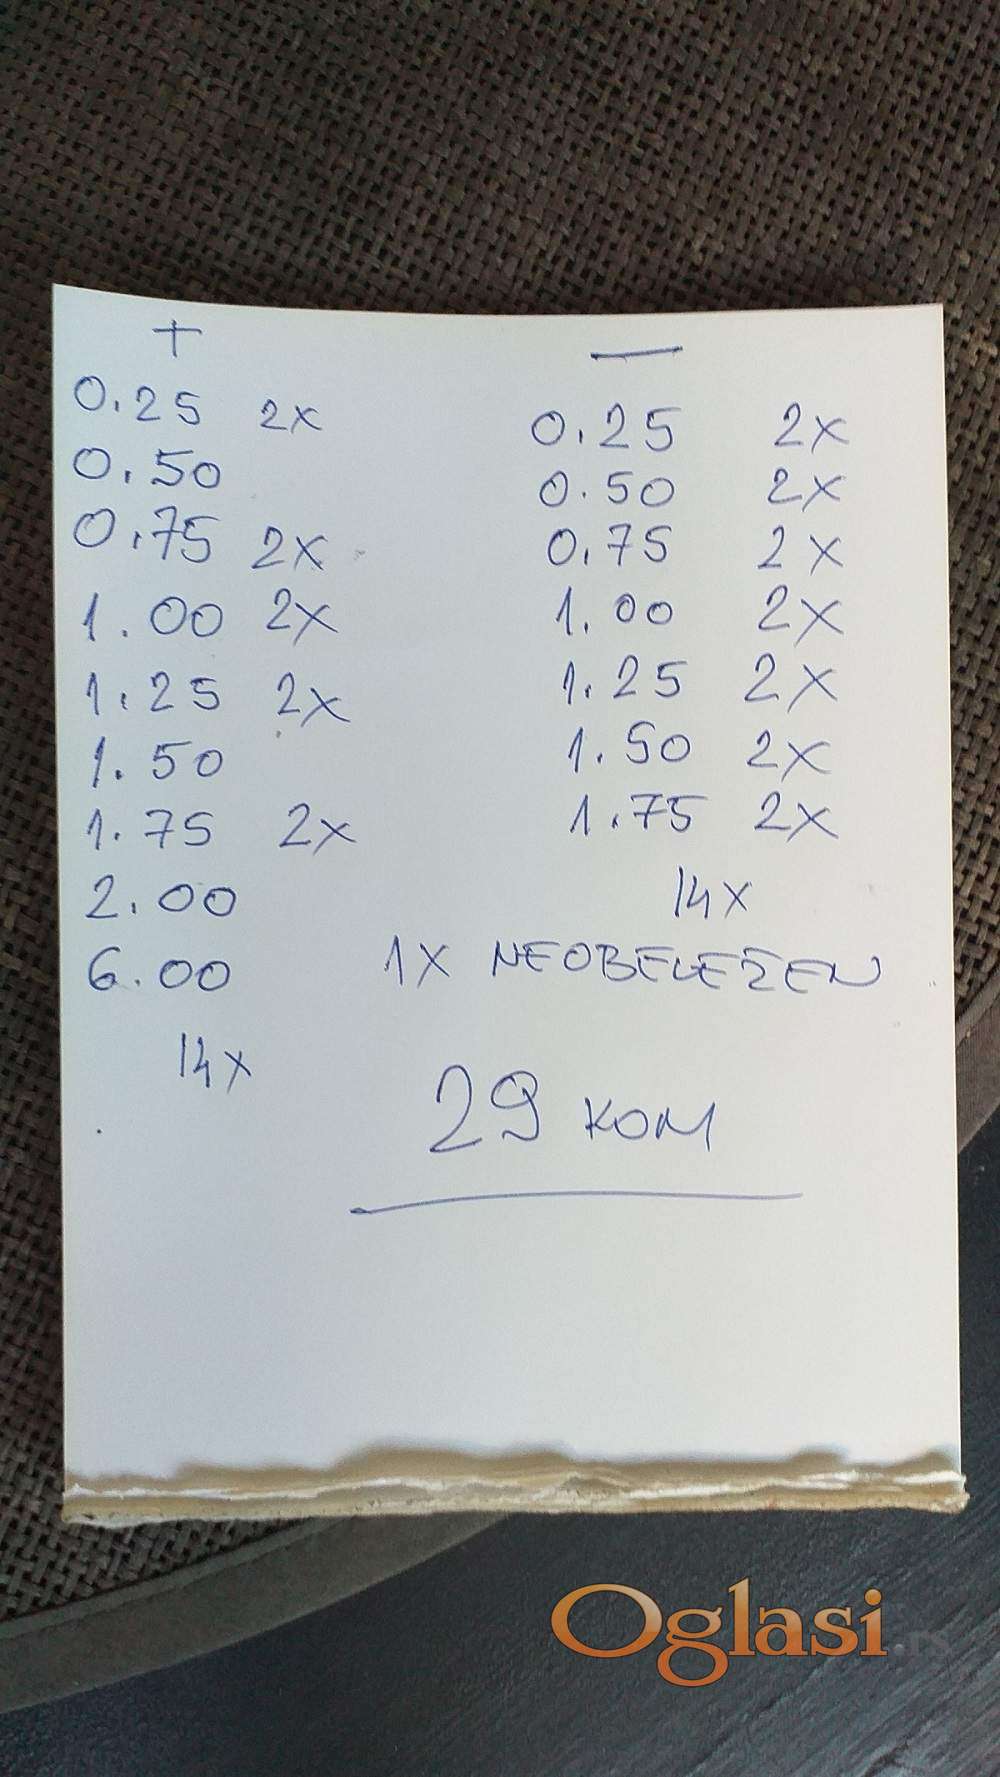 +
0.25 2x
0.50
0.75 2x
1.00 2x
1.25 2x
1.50
1.75 2x
2.00
6.00
14x
—
0.25 2x
0.50 2x
0.75 2x
1.00 2x
1.25 2x
1.50 2x
1.75 2x
14x
1X NEOBELEŽEN
29 KOM
Oglasi.rs